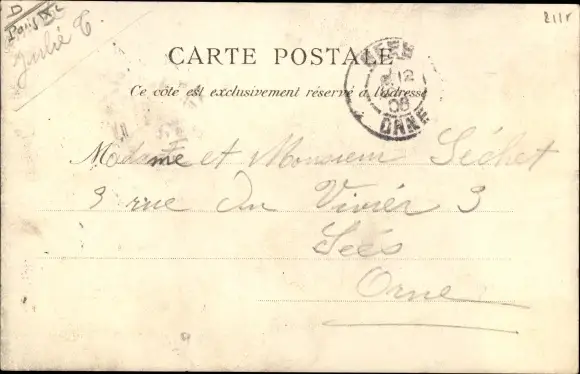 D
Paris IX
2118
CARTE POSTALE
Ce côté est exclusivement réservé à l'adresse
12
08
ORNE
Madame et Monsieur Séchet
3 rue du Vivier 3
Sées
Orne